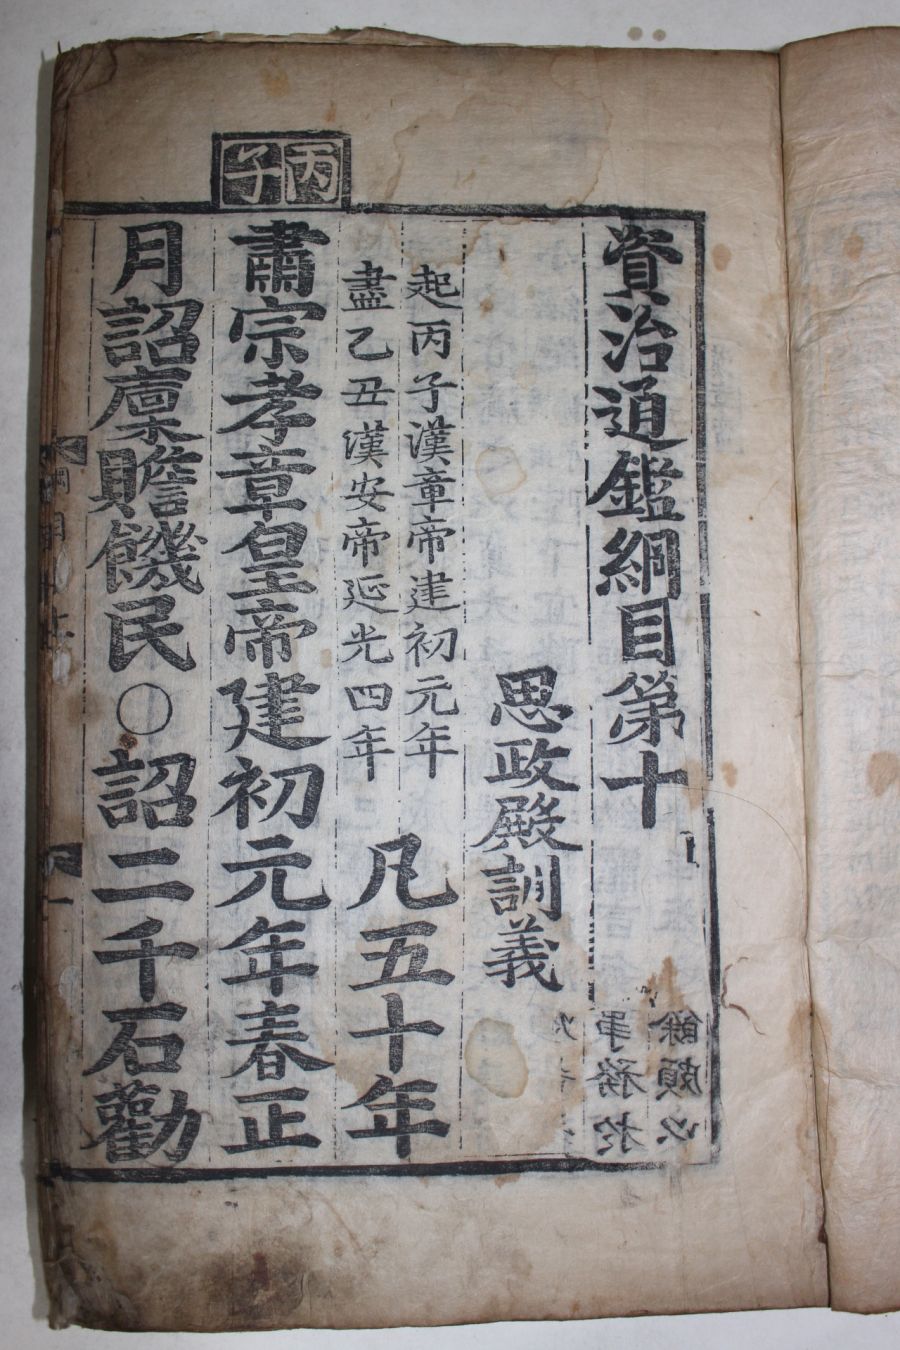 資治通鑑綱目第十
思政殿訓義
起丙子漢章帝建初元年
盡乙丑漢安帝延光四年
凡五十年
丙子
肅宗孝章皇帝建初元年春正
月詔廩贍饑民○詔二千石勸